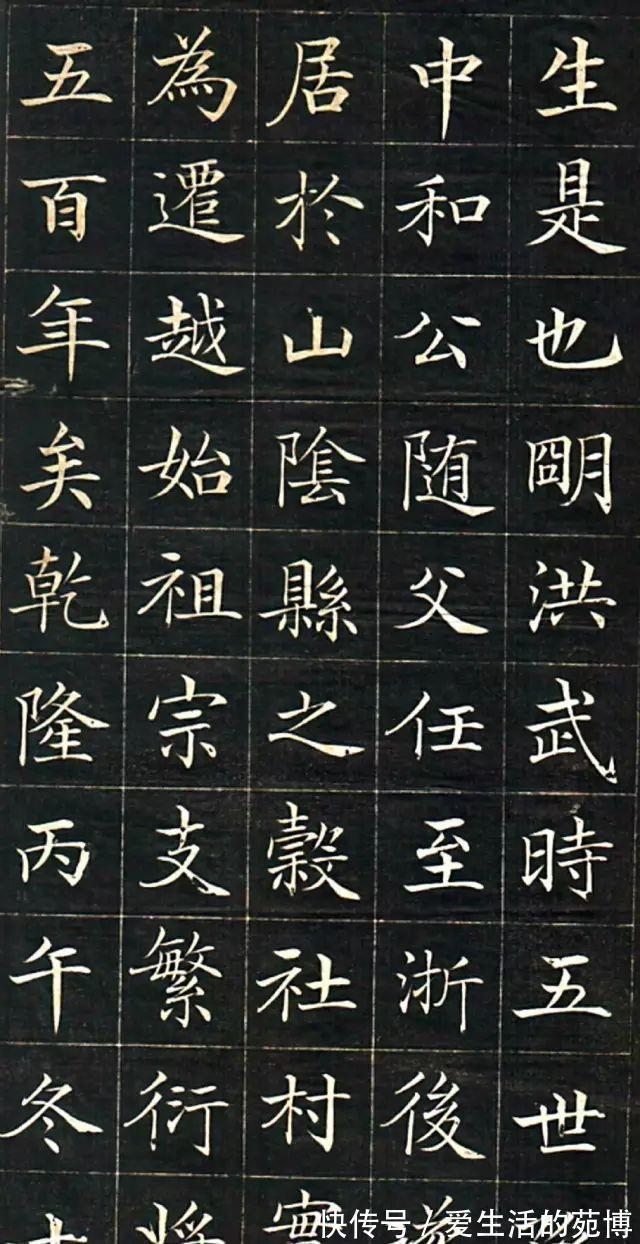 生是也朙洪武時五世
中和公随父任至浙後
居於山陰縣之縠社村
為遷越始祖宗支繁衍
五百年矣乾隆丙午冬
快传号/爱生活的苑博